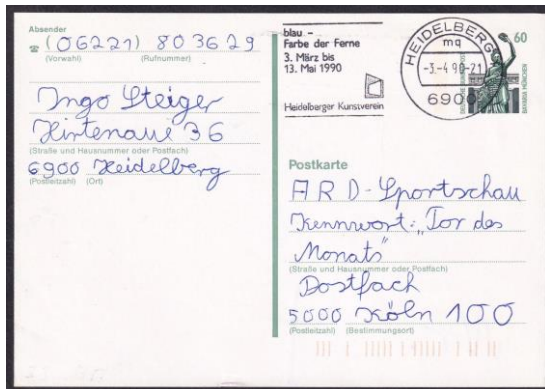 Absender
☎ (06221) 803629
(Vorwahl) (Rufnummer)
Ingo Steiger
Hirtenaue 36
(Straße und Hausnummer oder Postfach)
6900 Heidelberg
(Postleitzahl) (Ort)
blau -
Farbe der Ferne
3. März bis
13. Mai 1990
Heidelberger Kunstverein
HEIDELBERG
mq
-3.-4.90-21
6900
60
DEUTSCHE BUNDESPOST
BAVARIA MÜNCHEN
Postkarte
ARD-Sportschau
Kennwort: „Tor des
Monats"
(Straße und Hausnummer oder Postfach)
Postfach
5000 Köln 100
(Postleitzahl) (Bestimmungsort)